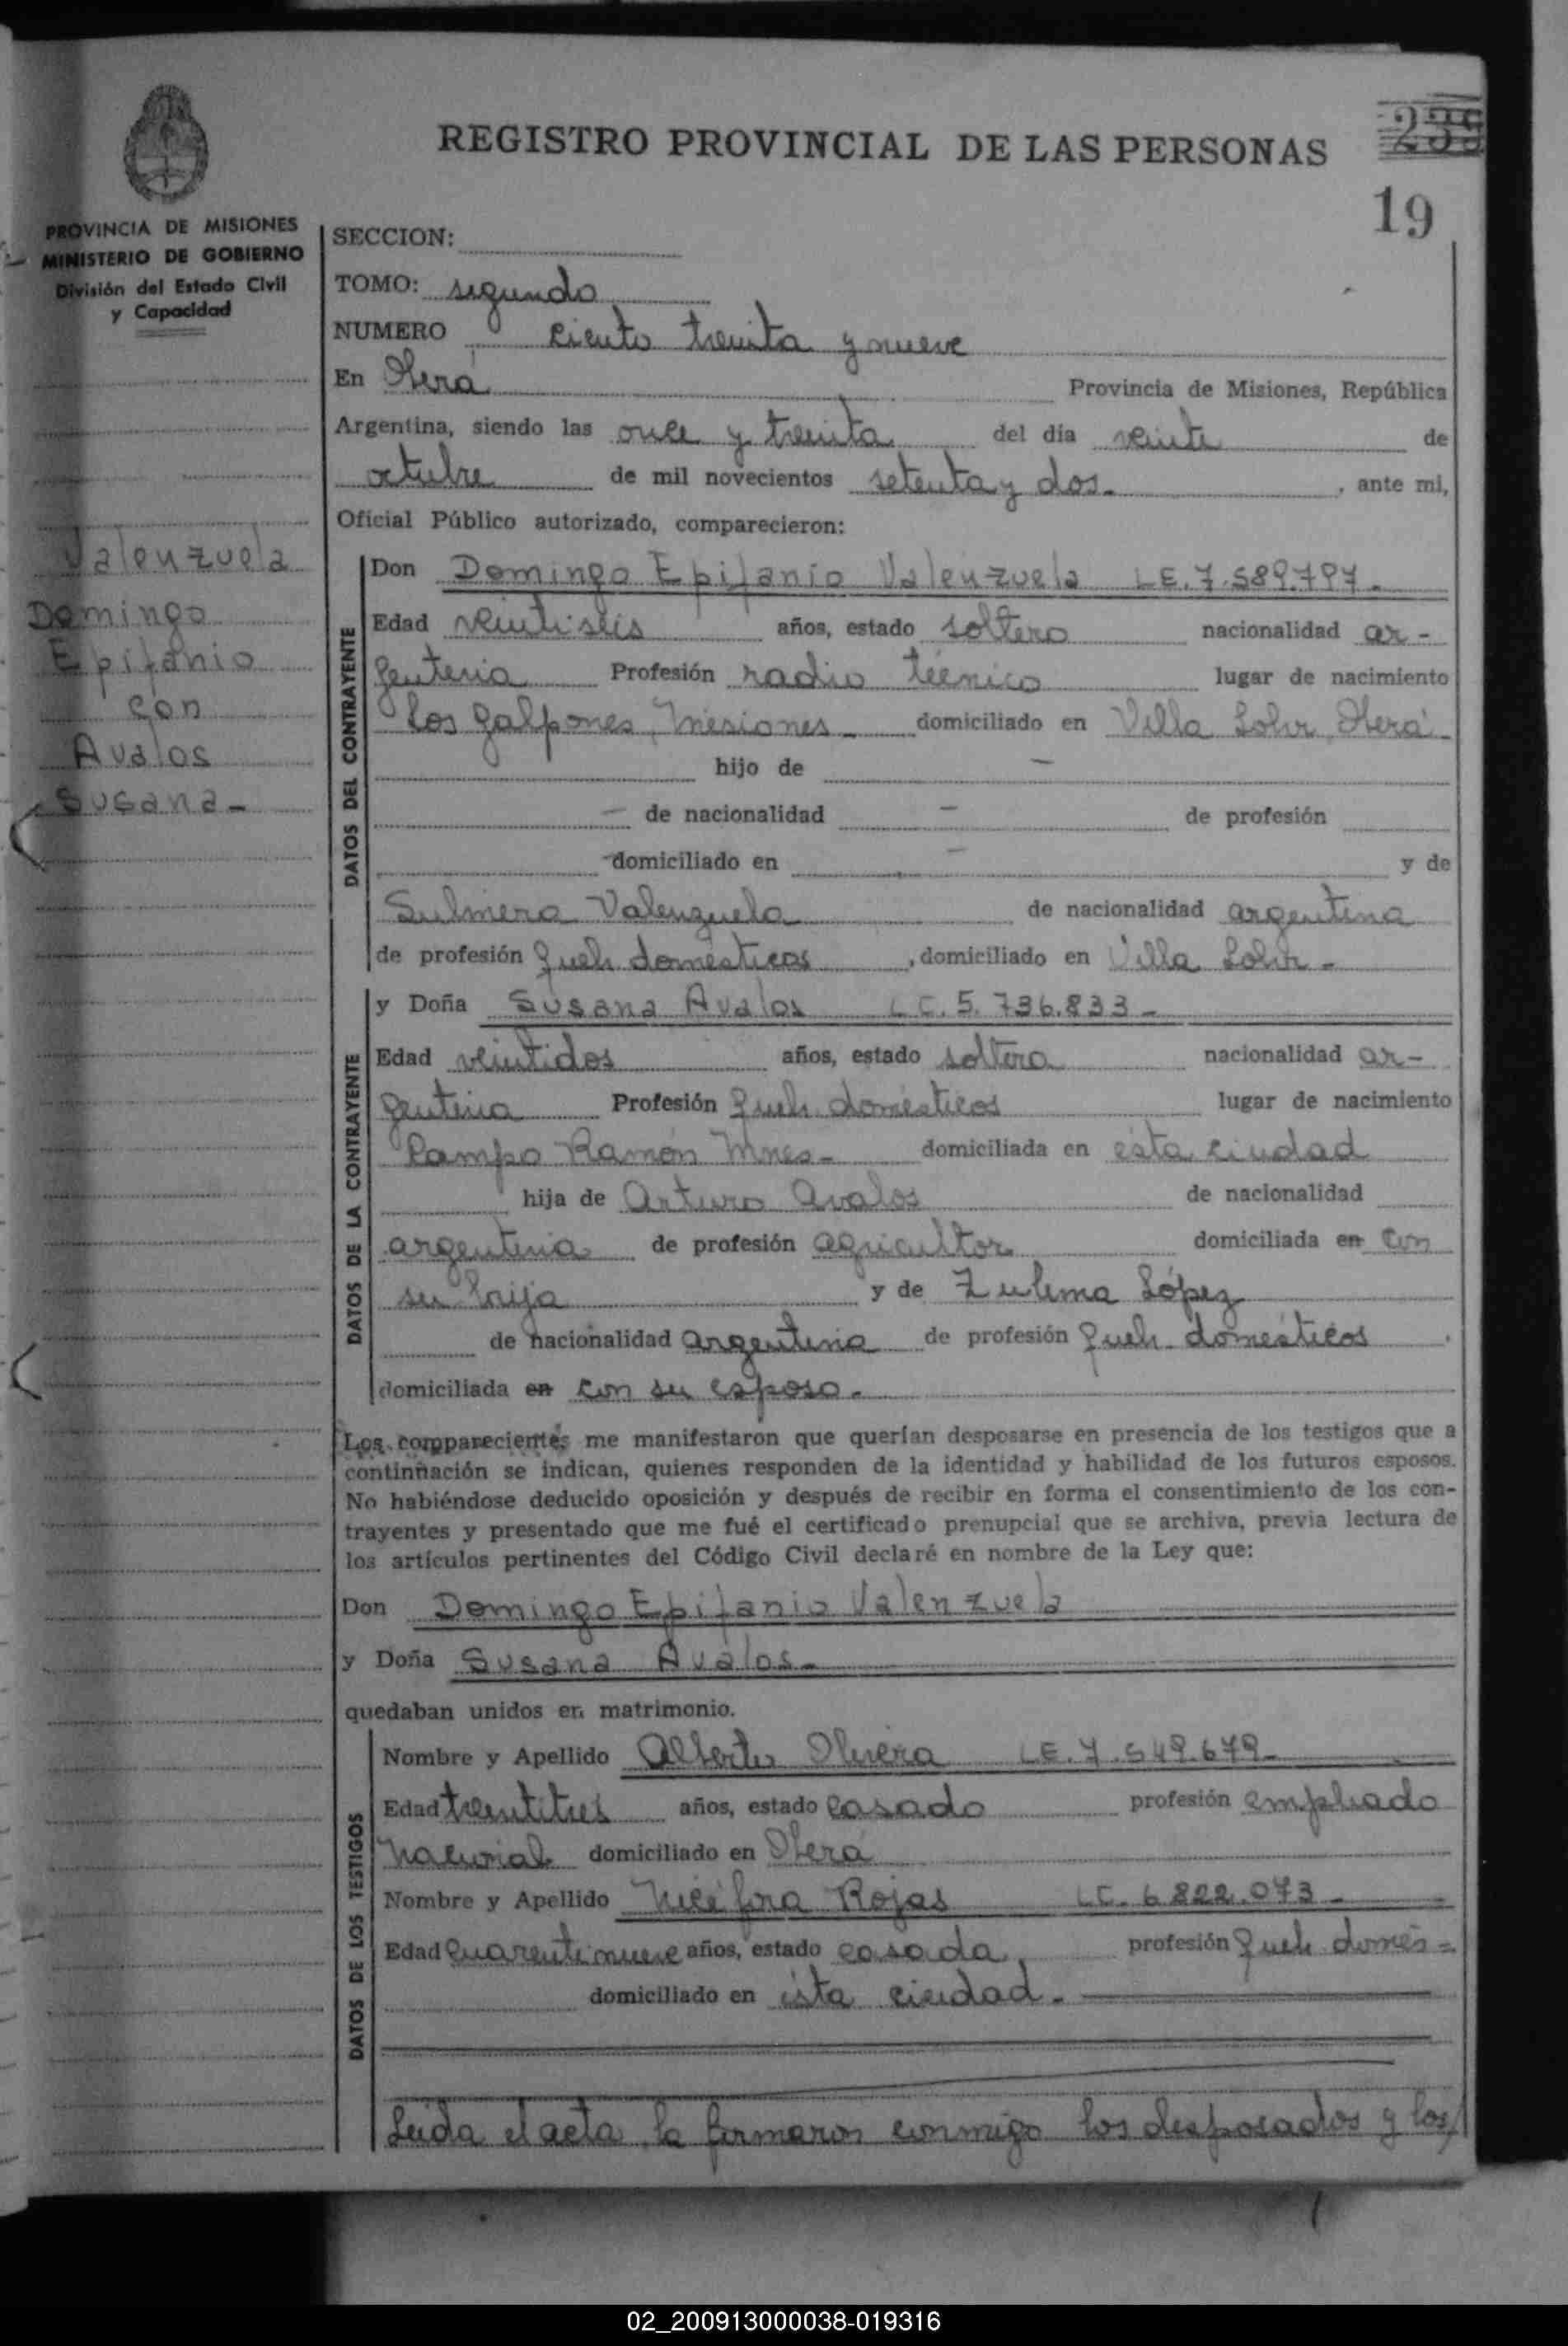 REGISTRO PROVINCIAL DE LAS PERSONAS
239
19
PROVINCIA DE MISIONES
MINISTERIO DE GOBIERNO
División del Estado Civil
y Capacidad
Valenzuela
Domingo
Epifanio
con
Avalos
Susana-
SECCION:
TOMO: segundo
NUMERO ciento treinta y nueve
En Oberá Provincia de Misiones, República
Argentina, siendo las once y treinta del día veinte de
octubre de mil novecientos setenta y dos- , ante mi,
Oficial Público autorizado, comparecieron:
DATOS DEL CONTRAYENTE
Don Domingo Epifanio Valenzuela L.E. 7.589.797-
Edad veintiseis años, estado soltero nacionalidad ar-
gentina Profesión radio técnico lugar de nacimiento
Los Galpones, Misiones- domiciliado en Villa Lohr, Oberá-
hijo de -
- de nacionalidad - de profesión
- domiciliado en - y de
Sulmira Valenzuela de nacionalidad argentina
de profesión queh. domésticos , domiciliado en Villa Lohr-
DATOS DE LA CONTRAYENTE
y Doña Susana Avalos L.C. 5.736.833-
Edad veintidos años, estado soltera nacionalidad ar-
gentina Profesión queh. domésticos lugar de nacimiento
Campo Ramón Mnes- domiciliada en ésta ciudad
hija de Arturo Avalos de nacionalidad
argentina de profesión agricultor domiciliada en con
su hija y de Zulema López
de nacionalidad argentina de profesión queh. domésticos .
domiciliada en con su esposo-
Los comparecientes me manifestaron que querían desposarse en presencia de los testigos que a
continñación se indican, quienes responden de la identidad y habilidad de los futuros esposos.
No habiéndose deducido oposición y después de recibir en forma el consentimiento de los con-
trayentes y presentado que me fué el certificado prenupcial que se archiva, previa lectura de
los artículos pertinentes del Código Civil declaré en nombre de la Ley que:
Don Domingo Epifanio Valenzuela
y Doña Susana Avalos-
quedaban unidos en matrimonio.
DATOS DE LOS TESTIGOS
Nombre y Apellido Alberto Olivera L.E. 7.549.679-
Edad treintitres años, estado casado profesión empleado
Nacional domiciliado en Oberá
Nombre y Apellido Nicéfora Rojas L.C. 6.822.073-
Edad cuarentinueve años, estado casada profesión queh. domés-
domiciliado en ésta ciudad-
Leída el acta, la firmaron conmigo los desposados y los/
02_200913000038-019316